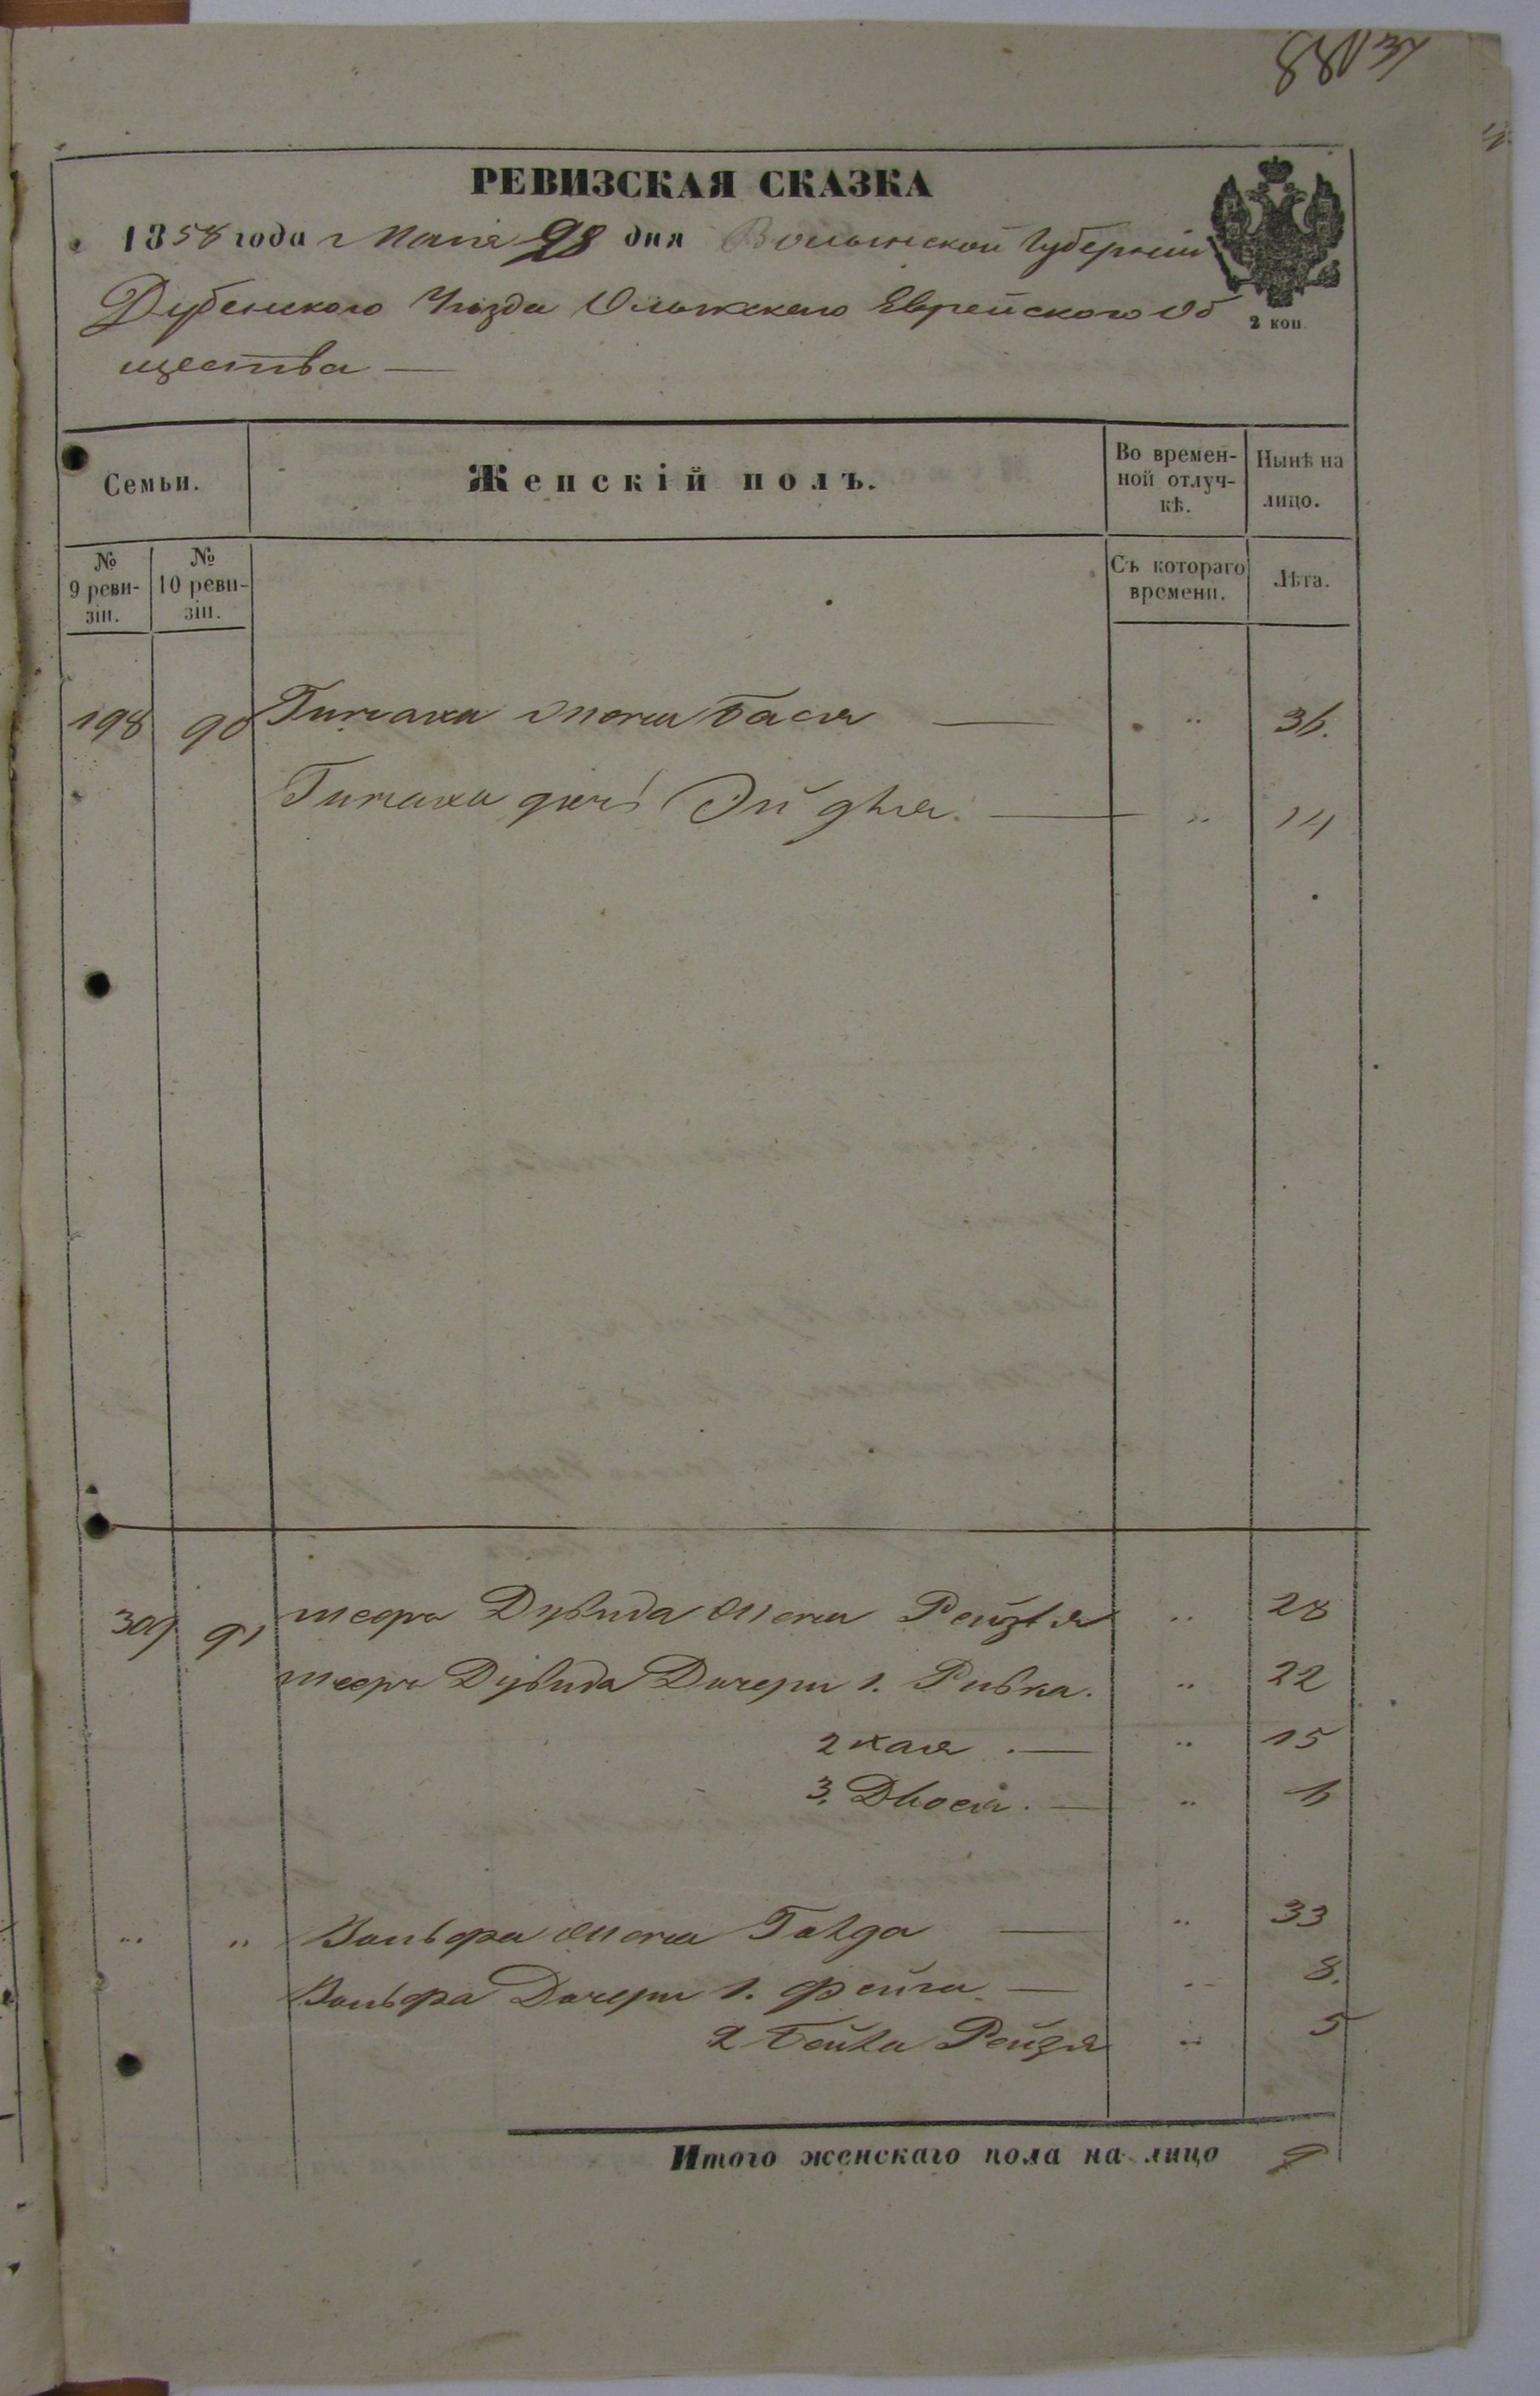 88
РЕВИЗСКАЯ СКАЗКА
1858 года Маія 28 дня Волынской Губерніи
Дубенского Уѣзда Олыкскаго Еврейского Об
щества —
2 коп
Семьи.
Женскій полъ.
Во времен-
ной отлуч-
кѣ.
Нынѣ на
лицо.
№
9 реви-
зіи.
№
10 реви-
зіи.
Съ котораго
времени.
Лѣта.
198 90 жена Бася — " 36.
дочь — " 14
309 91 Дувида жена Рейзя " 28
Дувида Дочери 1. Ривка. " 22
2 Хая . — " 15
3. Двося . — " 6
" " Вольфа жена Голда — " 33
Вольфа Дочери 1. Фейга — " 8.
2 Бейла Рейзя " 5
Итого женскаго пола на лицо 9